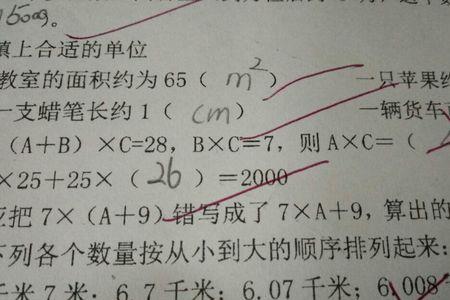 1500g。
填上合适的单位
教室的面积约为65（m²） 一只苹果约
一支蜡笔长约1（cm） 一辆货车
（A＋B）×C=28，B×C=7，则A×C=（
×25＋25×（26）=2000
应把7×（A＋9）错写成了7×A＋9，算出的
下列各个数量按从小到大的顺序排列起来：
千米7米；6.7千米；6.07千米；6.008